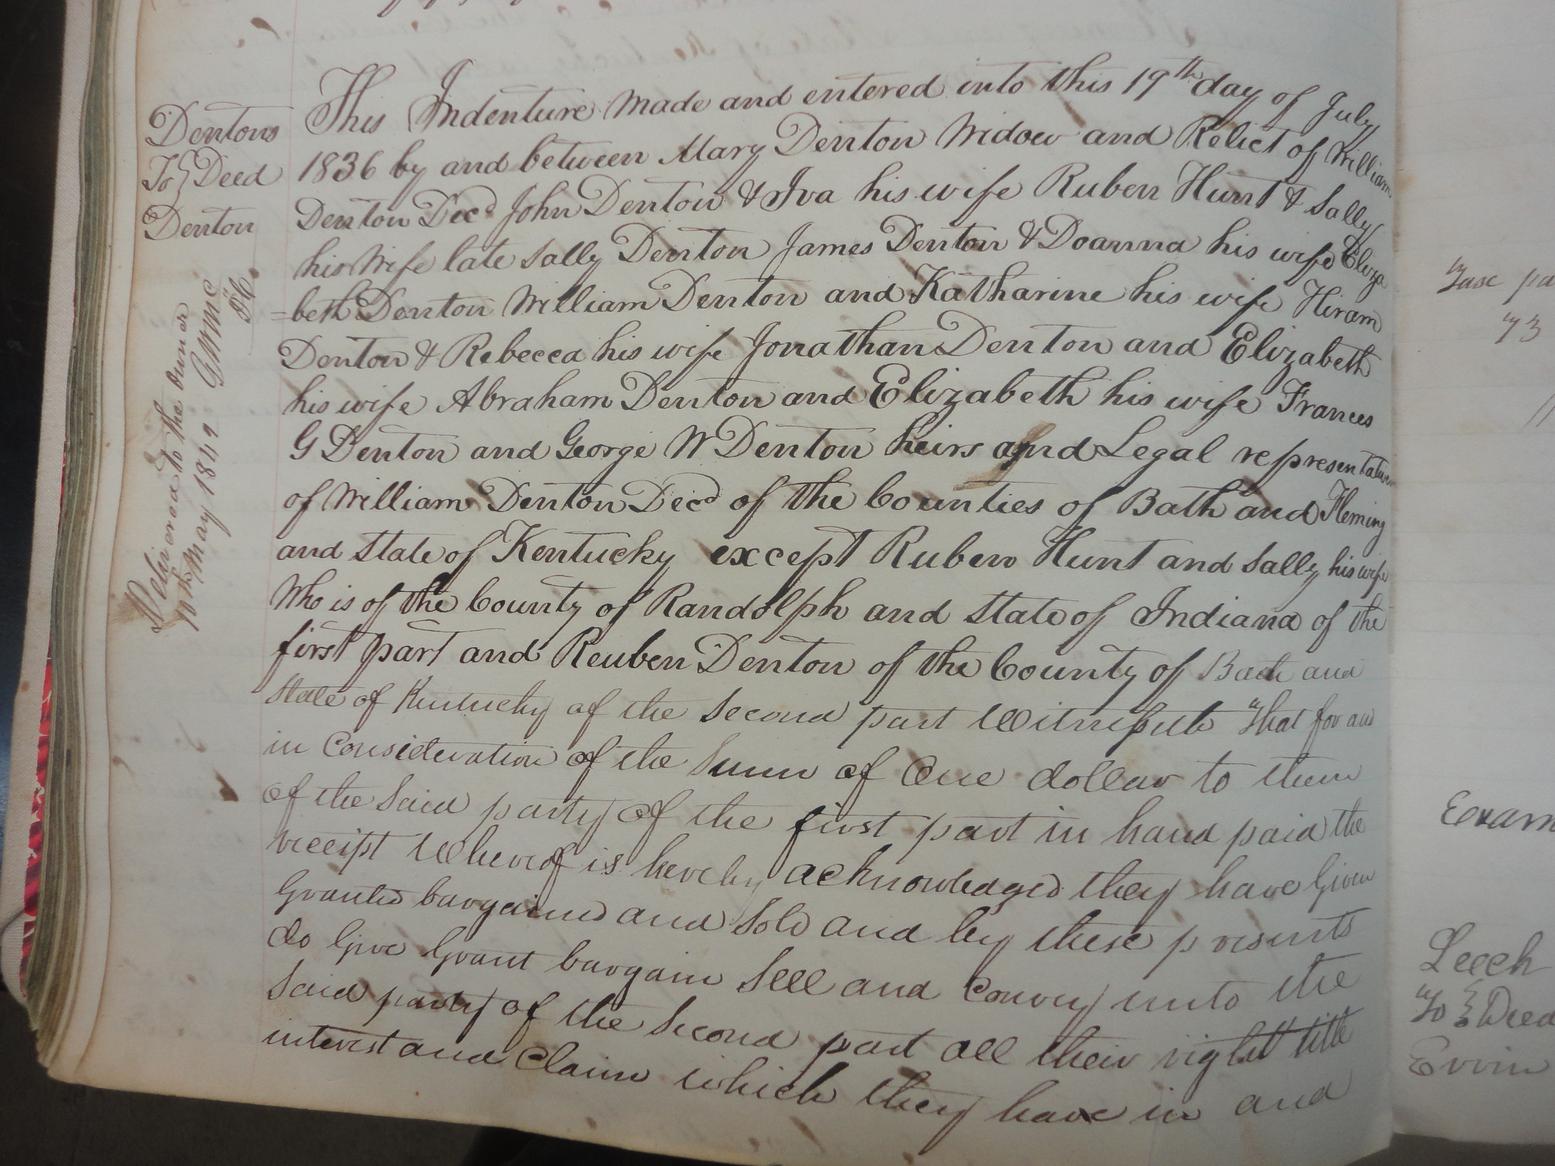 Dentons
To } Deed
Denton
Delivered to the owner
10th May 1842
This Indenture made and entered into this 19th day of July
1836 by and between Mary Denton Widow and Relict of William
Denton Decd John Denton & Iva his wife Ruben Hunt & Sally
his Wife late Sally Denton James Denton & Doanna his wife Eliza
=beth Denton William Denton and Katharine his wife Hiram
Denton & Rebecca his wife Jonathan Denton and Elizabeth
his wife Abraham Denton and Elizabeth his wife Frances
G Denton and George W Denton heirs and Legal representatives
of William Denton Decd of the Counties of Bath and Fleming
and State of Kentucky except Ruben Hunt and Sally his wife
Who is of the County of Randolph and State of Indiana of the
first part and Reuben Denton of the County of Bath and
State of Kentucky of the Second part Witnesseth That for and
in Consideration of the Sum of One dollar to them
of the Said party of the first part in hand paid the
receipt Whereof is hereby acknowledged they have Given
Granted bargained and Sold and by these presents
do Give Grant bargain Sell and Convey unto the
Said party of the Second part all their right title
interest and Claim which they have in and
73
Leech
To } Deed
Ervin